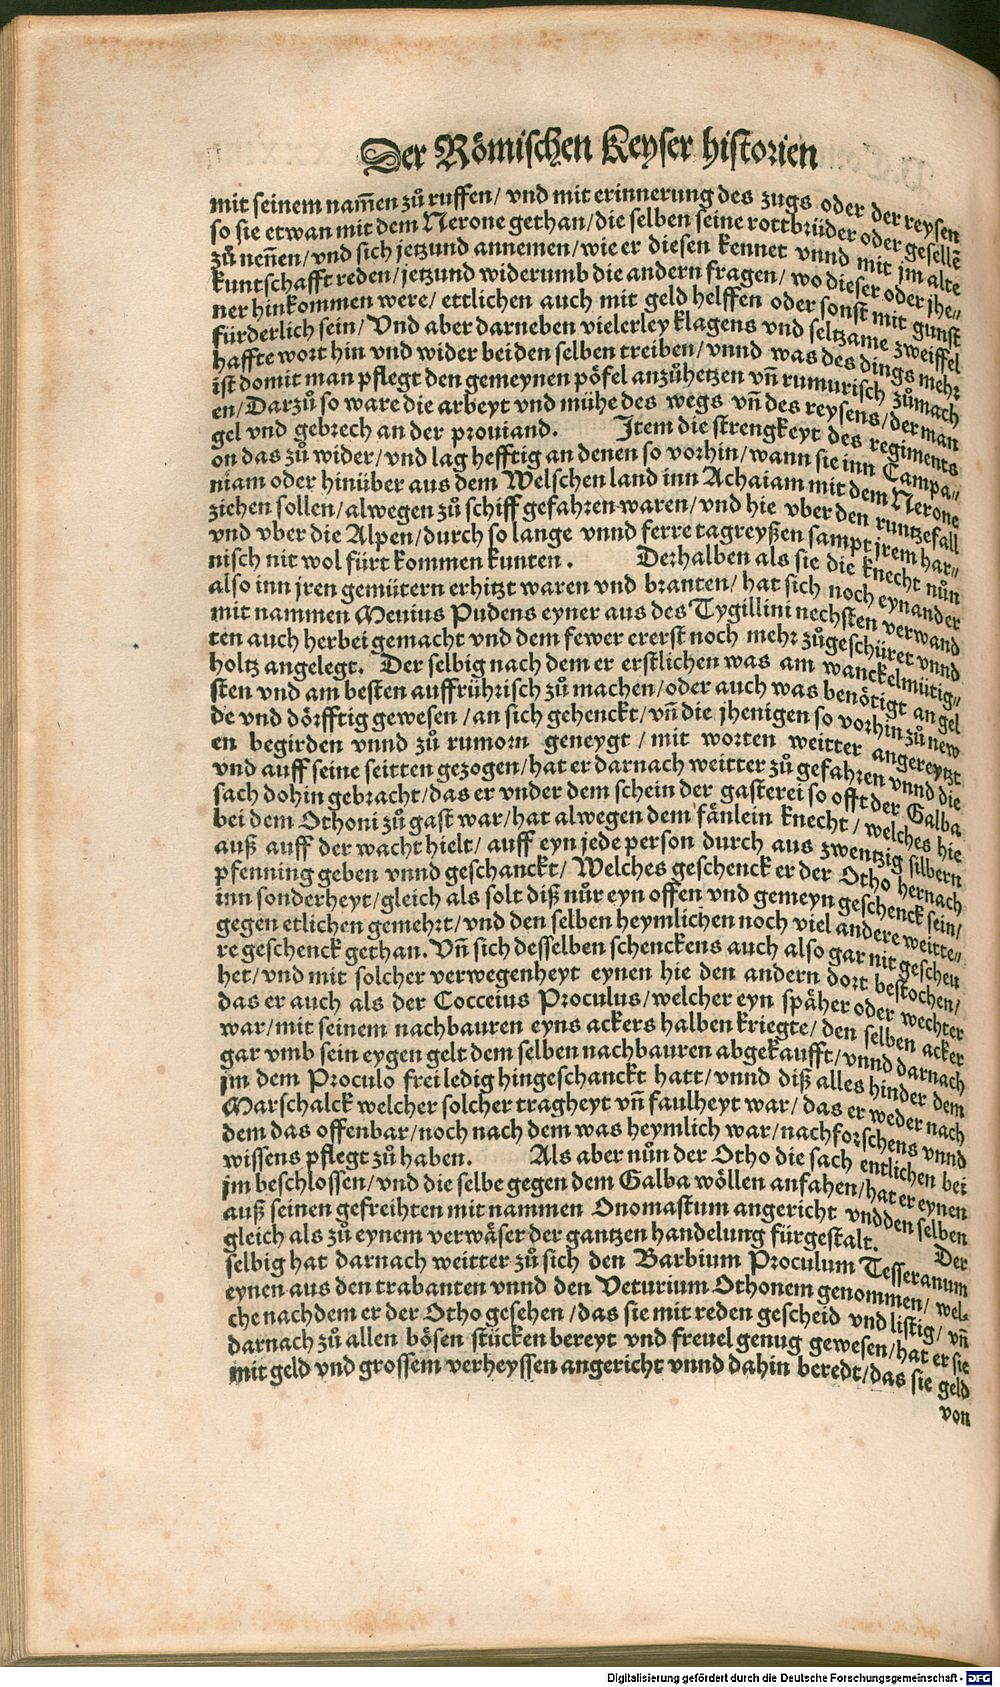 Der Römischen Keyser historien
mit seinem nam̃en zů ruffen/ vnd mit erinnerung des zugs oder der reysen
so sie etwan mit dem Nerone gethan/die selben seine rottbrüder oder gesellẽ
zů neñen/vnd sich jetzund annemen/wie er diesen kennet vnnd mit jm alte
kuntschafft reden/jetzund widerumb die andern fragen/ wo dieser oder jhe⸗
ner hinkommen were/ ettlichen auch mit geld helffen oder sonst mit gunst
fürderlich sein/ Vnd aber darneben vielerley klagens vnd seltzame zweiffel
haffte wort hin vnd wider bei den selben treiben/vnnd was des dings mehr
ist domit man pflegt den gemeynen pöfel anzůhetzen vñ rumurisch zůmach
en/Darzů so ware die arbeyt vnd mühe des wegs vñ des reysens/der man
gel vnd gebrech an der prouiand. Item die strengkeyt des regiments
on das zů wider/vnd lag hefftig an denen so vorhin/wann sie inn Campa⸗
niam oder hinüber aus dem Welschen land inn Achaiam mit dem Nerone
ziehen sollen/alwegen zů schiff gefahren waren/vnd hie vber den runtzefall
vnd vber die Alpen/durch so lange vnnd ferre tagreyßen sampt jrem har⸗
nisch nit wol fürt kommen kunten. Derhalben als sie die knecht nůn
also inn jren gemütern erhitzt waren vnd branten/ hat sich noch eynander
mit nammen Meuius Pudens eyner aus des Tygillini nechsten verwand
ten auch herbei gemacht vnd dem fewer ererst noch mehr zůgeschüret vnnd
holtz angelegt. Der selbig nach dem er erstlichen was am wanckelmütig⸗
sten vnd am besten auffrührisch zů machen/oder auch was benötigt angel
de vnd dörfftig gewesen /an sich gehenckt/vñ die jhenigen so vorhin zů new
en begirden vnnd zů rumorn geneygt / mit worten weitter angereytzt
vnd auff seine seitten gezogen/hat er darnach weitter zů gefahren vnnd die
sach dohin gebracht/das er vnder dem schein der gasterei so offt der Galba
bei dem Othoni zů gast war/hat alwegen dem fånlein knecht / welches hie
auß auff der wacht hielt/ auff eyn jede person durch aus zwentzig silbern
pfenning geben vnnd geschanckt/ Welches geschenck er der Otho hernach
inn sonderheyt/gleich als solt diß nůr eyn offen vnd gemeyn geschenck sein/
gegen etlichen gemehrt/vnd den selben heymlichen noch viel andere weitte⸗
re geschenck gethan. Vñ sich desselben schenckens auch also gar nit gescheu
het/vnd mit solcher verwegenheyt eynen hie den andern dort bestochen/
das er auch als der Cocceius Proculus/welcher eyn späher oder wechter
war/mit seinem nachbauren eyns ackers halben kriegte/ den selben acker
gar vmb sein eygen gelt dem selben nachbauren abgekaufft/vnnd darnach
jm dem Proculo frei ledig hingeschanckt hatt/vnnd diß alles hinder dem
Marschalck welcher solcher tragheyt vñ faulheyt war/ das er weder nach
dem das offenbar/noch nach dem was heymlich war/nachforschens vnnd
wissens pflegt zů haben. Als aber nůn der Otho die sach entlichen bei
jm beschlossen/vnd die selbe gegen dem Galba wöllen anfahen/hat er eynen
auß seinen gefreihten mit nammen Onomastum angericht vnd den selben
gleich als zů eynem verwäser der gantzen handelung fürgestalt. Der
selbig hat darnach weitter zů sich den Barbium Proculum Tesseranum
eynen aus den trabanten vnnd den Veturium Othonem genommen/ wel⸗
che nachdem er der Otho gesehen /das sie mit reden gescheid vnd listig/ vñ
darnach zů allen bösen stücken bereyt vnd freuel genug gewesen/hat er sie
mit geld vnd grossem verheyssen angericht vnnd dahin beredt/das sie geld
von
Digitalisierung gefördert durch die Deutsche Forschungsgemeinschaft - DFG